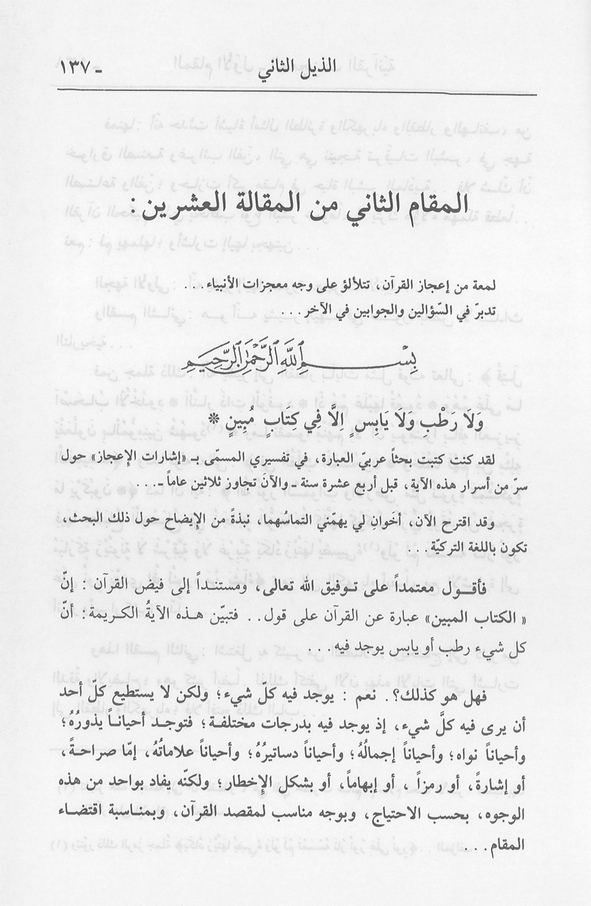 الذيل الثاني - ١٣٧
المقام الثاني من المقالة العشرين :
لمعة من إعجاز القرآن، تتلألؤ على وجه معجزات الأنبياء...
تدبرّ في السّؤالين والجوابين في الآخر...
بِسْمِ اللَّهِ الرَّحْمَٰنِ الرَّحِيمِ
وَلَا رَطْبٍ وَلَا يَابِسٍ اِلَّا فِي كِتَابٍ مُبِينٍ *
لقد كنت كتبت بحثاً عربيّ العبارة، في تفسيري المسمّى بـ «إشارات الإعجاز» حول
سرّ من أسرار هذه الآية، قبل أربع عشرة سنة ـ والآن تجاوز ثلاثين عاماً ـ...
وقد اقترح الآن، أخَوانِ لي يهمّني التماسُهما، نبذةً من الإيضاح حول ذلك البحث،
تكون باللغة التركيّة...
فأقول معتمداً على توفيق الله تعالى، ومستنداً إلى فيض القرآن : إنّ
« الكتاب المبين» عبارة عن القرآن على قول.. فتبيّن هذه الآيةُ الكريمة؛ أنّ
كل شيء رطب أو يابس يوجد فيه...
فهل هو كذلك؟. نعم : يوجد فيه كلّ شيء؛ ولكن لا يستطيع كلّ أحد
أن يرى فيه كلَّ شيء، إذ يوجد فيه بدرجات مختلفة؛ فتوجد أحياناً بذورُهُ؛
وأحياناً نواه؛ وأحياناً إجمالُهُ؛ وأحياناً دساتيرُهُ؛ وأحياناً علاماتُهُ، إمّا صراحةً،
أو إشارةً، أو رمزاً ، أو إبهاماً، أو بشكل الإخطار؛ ولكنّه يفاد بواحد من هذه
الوجوه، بحسب الاحتياج، وبوجه مناسب لمقصد القرآن، وبمناسبة اقتضاء
المقام...